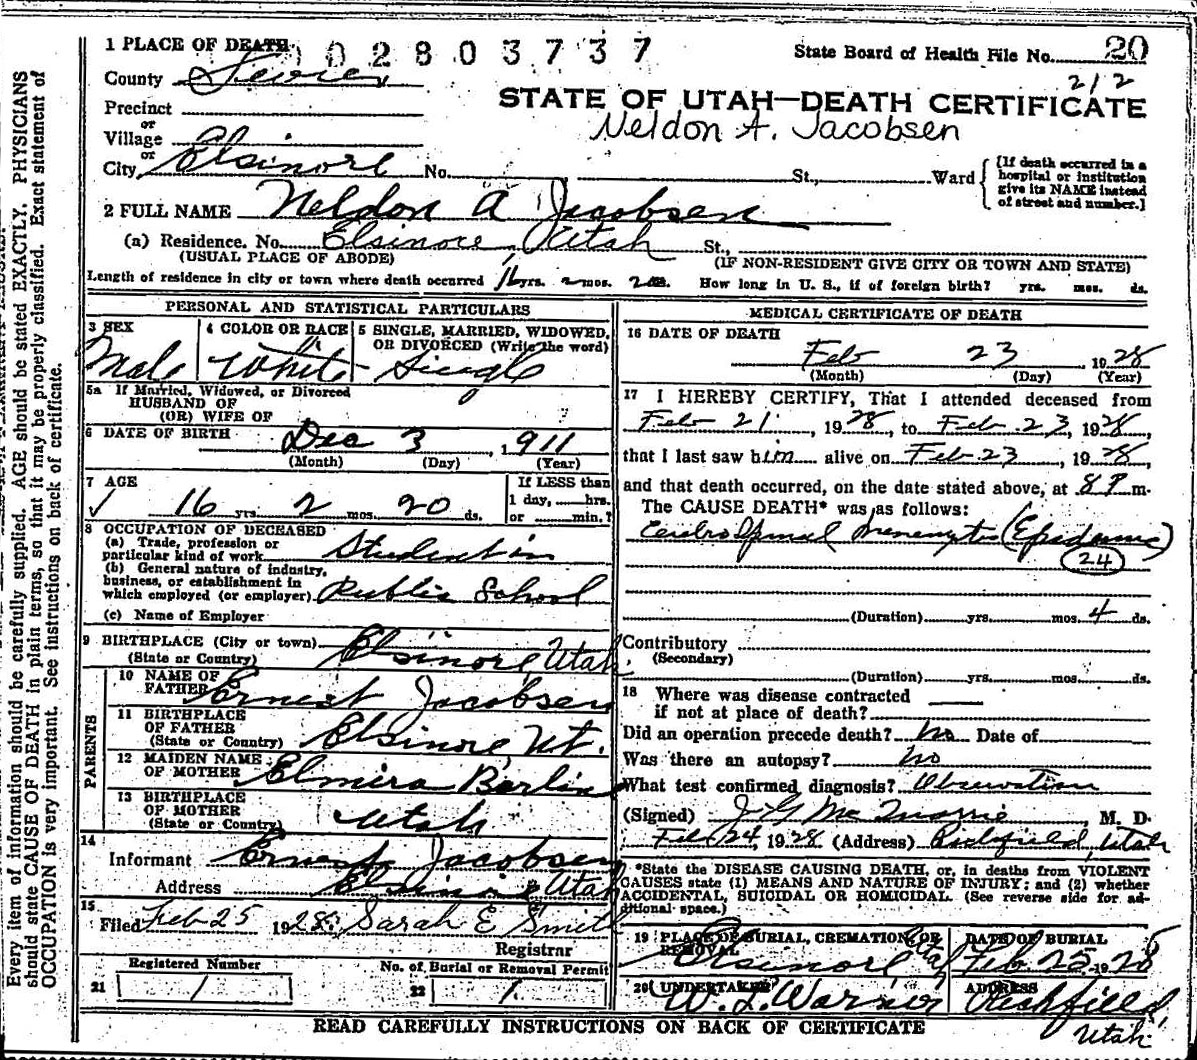 1 PLACE OF DEATH 0 2 8 0 3 7 3 7 State Board of Health File No. 20
County Sevier 212
Precinct STATE OF UTAH—DEATH CERTIFICATE
or Neldon A. Jacobsen
Village
or
City Elsinore No. St., Ward {[If death occurred in a hospital or institution give its NAME instead of street and number.]
2 FULL NAME Neldon A Jacobsen
(a) Residence. No. Elsinore, Utah St.,
(USUAL PLACE OF ABODE) (IF NON-RESIDENT GIVE CITY OR TOWN AND STATE)
Length of residence in city or town where death occurred 16 yrs. 2 mos. 20 ds. How long in U. S., if of foreign birth? yrs. mos. ds.
PERSONAL AND STATISTICAL PARTICULARS
3 SEX 4 COLOR OR RACE 5 SINGLE, MARRIED, WIDOWED,
OR DIVORCED (Write the word)
Male White Single
5a If Married, Widowed, or Divorced
HUSBAND OF
(OR) WIFE OF
6 DATE OF BIRTH Dec 3, 1911
(Month) (Day) (Year)
7 AGE If LESS than
1 day, hrs.
16 yrs. 2 mos. 20 ds. or min.?
8 OCCUPATION OF DECEASED
(a) Trade, profession or
particular kind of work Student in
(b) General nature of industry,
business, or establishment in
which employed (or employer) Public School
(c) Name of Employer
9 BIRTHPLACE (City or town) Elsinore, Utah
(State or Country)
PARENTS
10 NAME OF
FATHER Ernest Jacobsen
11 BIRTHPLACE
OF FATHER
(State or Country) Elsinore Ut.
12 MAIDEN NAME
OF MOTHER Elmira Bertin
13 BIRTHPLACE
OF MOTHER
(State or Country) Utah
14
Informant Ernest Jacobsen
Address Elsinore Utah
15
Filed Feb 25 1928. Sarah E Smith
Registrar
Registered Number No. of Burial or Removal Permit
21 1 22 1
MEDICAL CERTIFICATE OF DEATH
16 DATE OF DEATH
Feb 23 1928
(Month) (Day) (Year)
17 I HEREBY CERTIFY, That I attended deceased from
Feb 21, 1928, to Feb 23, 1928,
that I last saw him alive on Feb 23, 1928,
and that death occurred, on the date stated above, at 8 P m.
The CAUSE DEATH* was as follows:
Cerebro Spinal Meningitis (Epidemic)
24
(Duration) yrs. mos. 4 ds.
Contributory
(Secondary)
(Duration) yrs. mos. ds.
18 Where was disease contracted
if not at place of death?
Did an operation precede death? No Date of
Was there an autopsy? No
What test confirmed diagnosis? Observation
(Signed) J G McQuarrie, M. D.
Feb 24, 1928 (Address) Richfield, Utah
*State the DISEASE CAUSING DEATH, or, in deaths from VIOLENT
CAUSES state (1) MEANS AND NATURE OF INJURY; and (2) whether
ACCIDENTAL, SUICIDAL OR HOMICIDAL. (See reverse side for ad-
ditional space.)
19 PLACE OF BURIAL, CREMATION, OR DATE OF BURIAL
REMOVAL
Elsinore Utah Feb. 25 1928
20 UNDERTAKER ADDRESS
W. L. Warner Richfield,
Utah.
READ CAREFULLY INSTRUCTIONS ON BACK OF CERTIFICATE
Every item of information should be carefully supplied. AGE should be stated EXACTLY. PHYSICIANS
should state CAUSE OF DEATH in plain terms, so that it may be properly classified. Exact statement of
OCCUPATION is very important. See instructions on back of certificate.